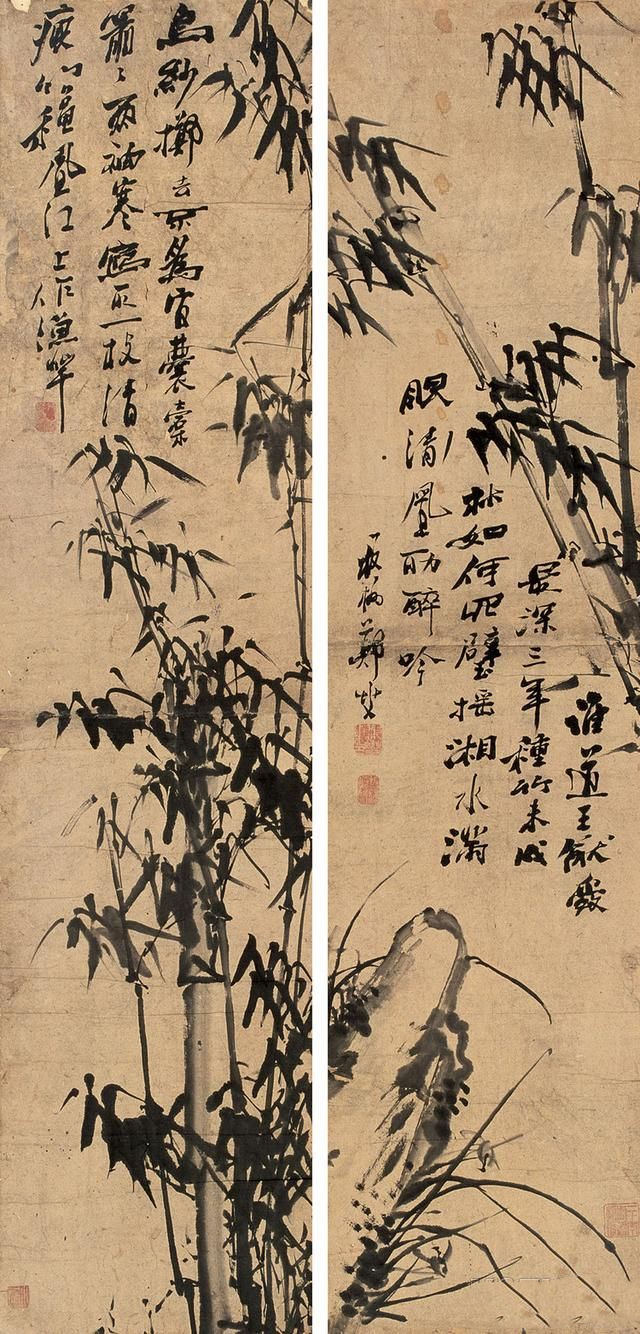 誰道王猷愛
最深三年種竹未成
林如何壁搖湘水滿
眼清風助醉吟
板橋鄭燮
烏紗擲去不為官囊橐
蕭蕭兩袖寒寫取一枝清
瘦竹秋風江上作漁竿